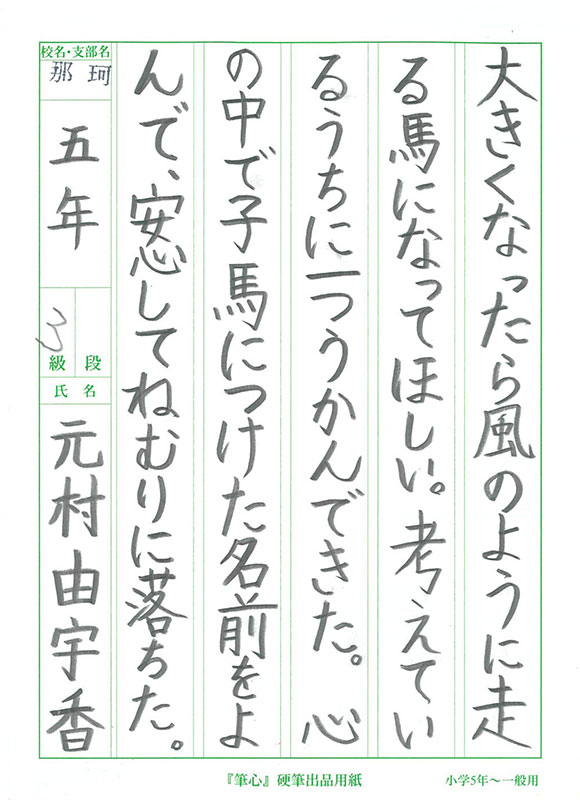 大きくなったら風のように走
る馬になってほしい。考えてい
るうちに一つうかんできた。心
の中で子馬につけた名前をよ
んで、安心してねむりに落ちた。
校名・支部名
那珂
五年
3
級 段
氏名
元村由宇香
『筆心』硬筆出品用紙
小学5年〜一般用